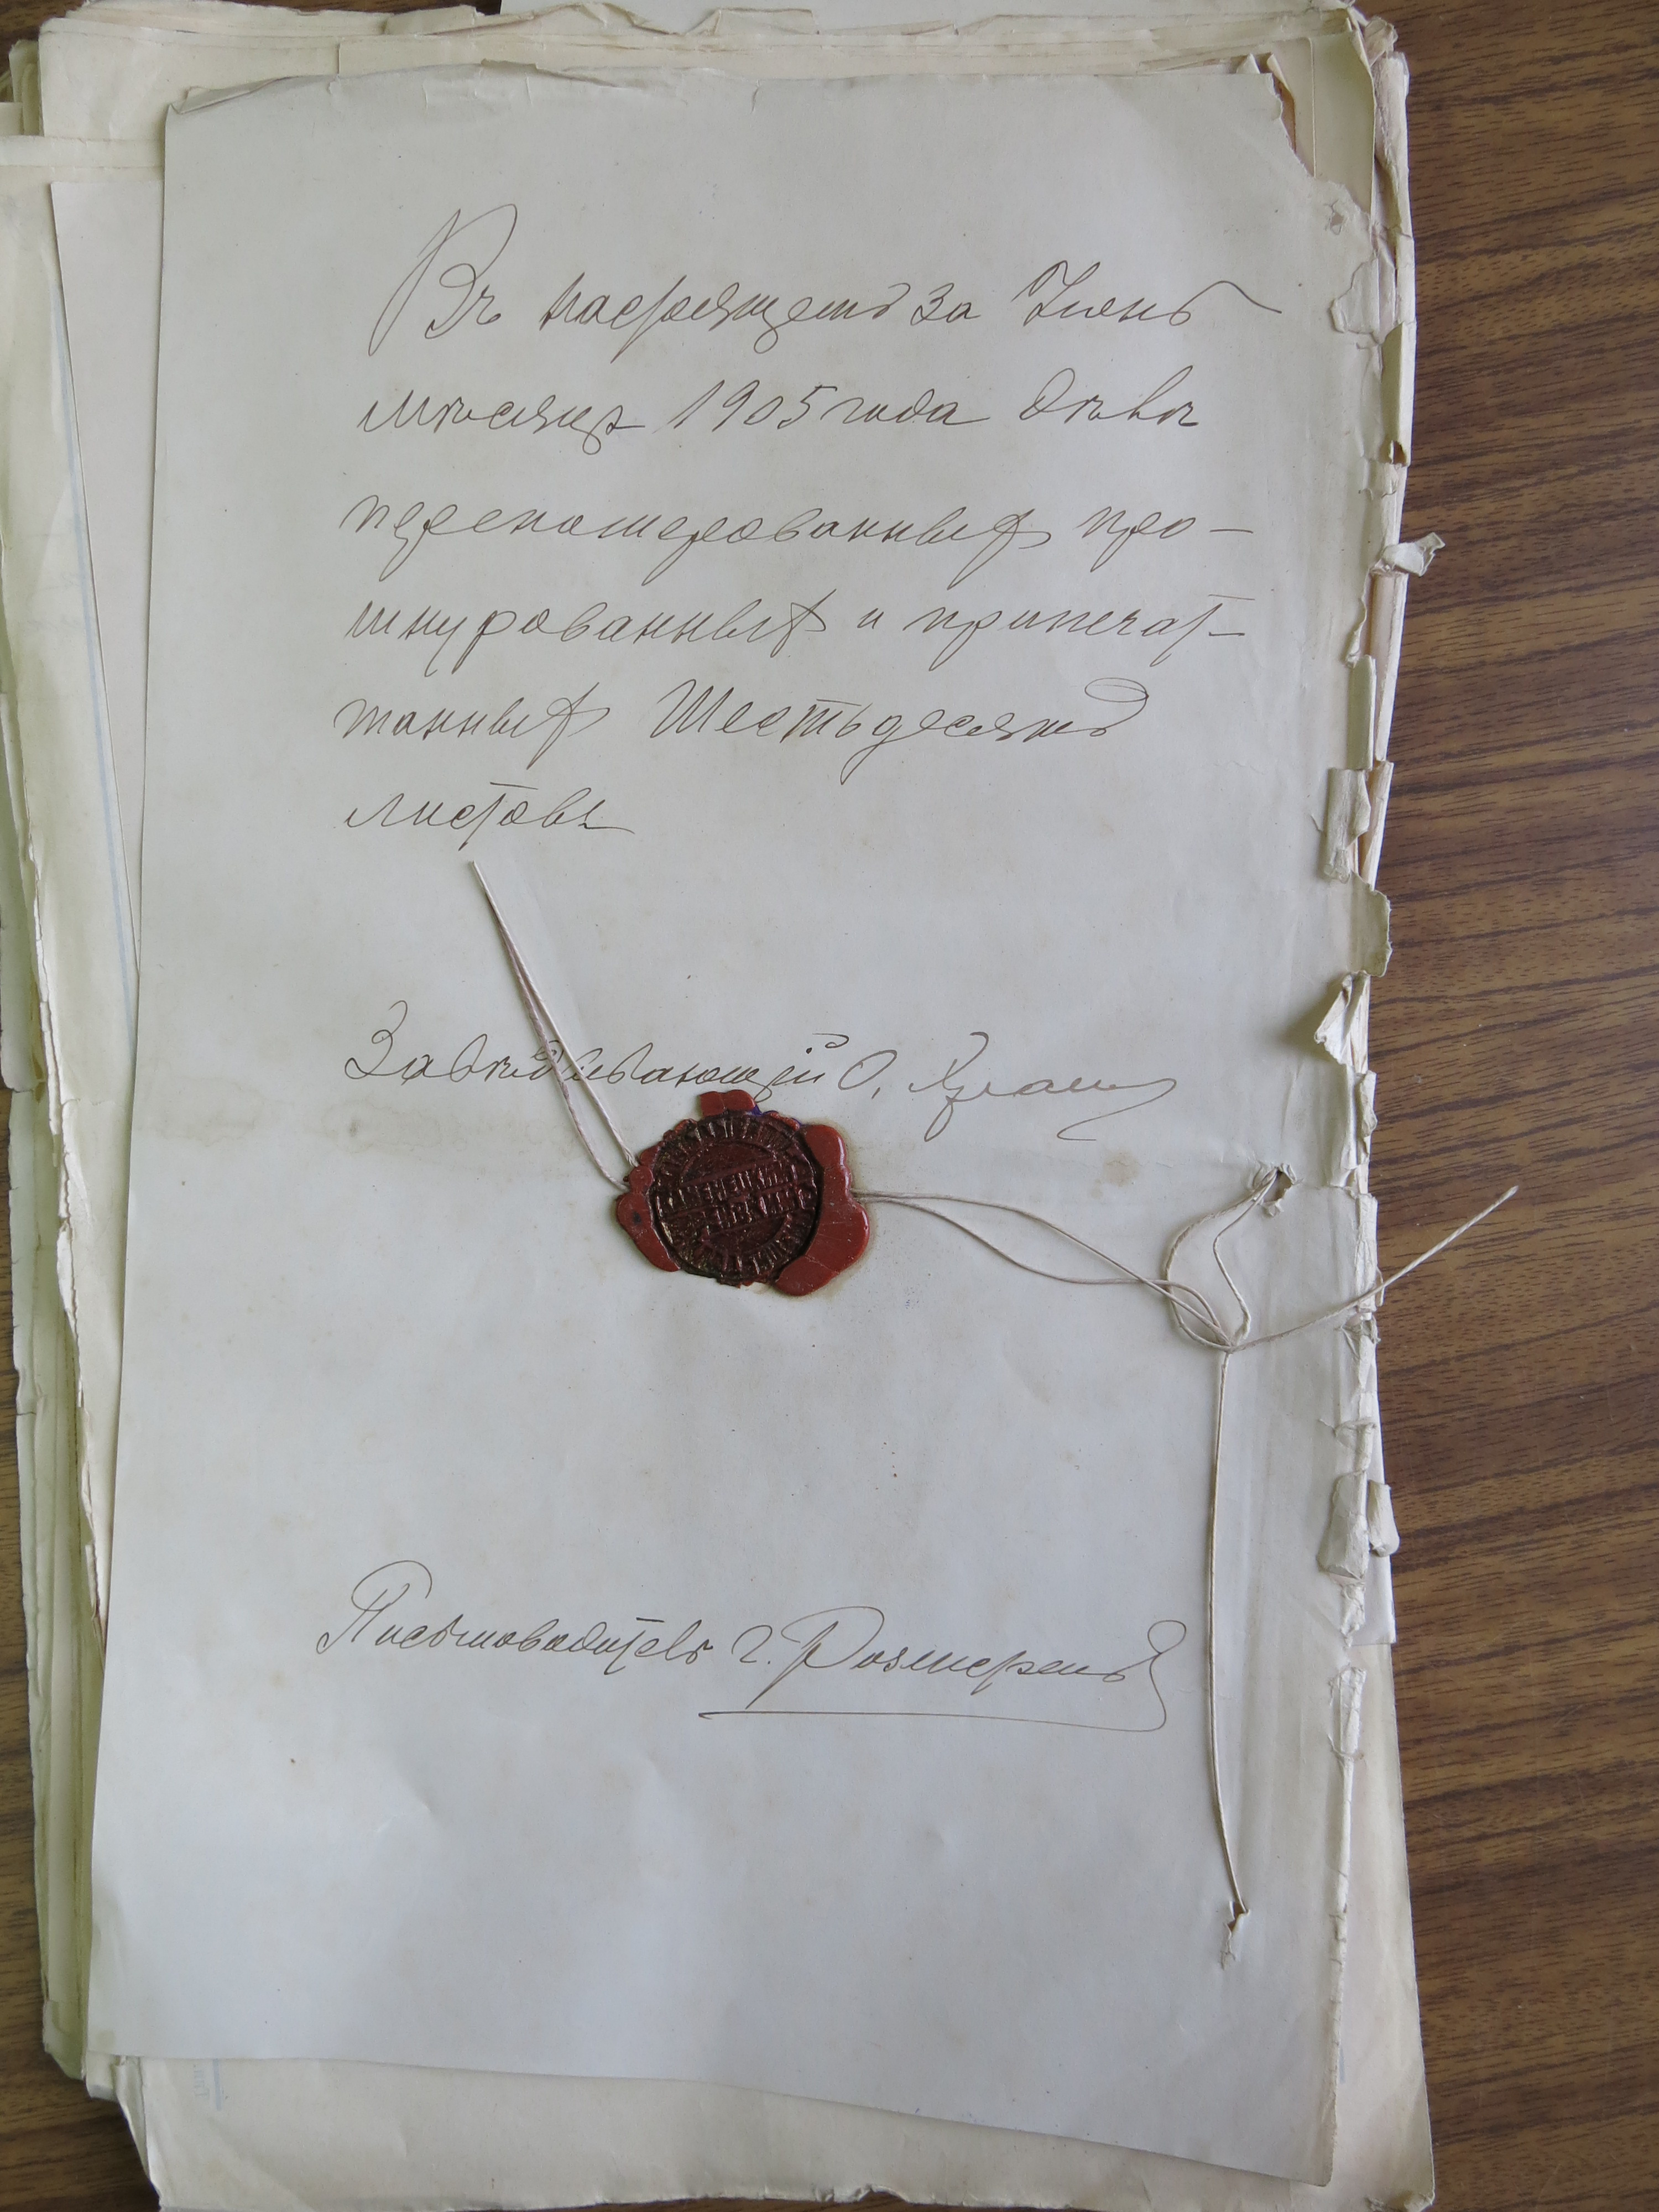 Въ настоящемъ за Июнь
мѣсяцъ 1905 года дѣлѣ
переномерованныхъ про-
шнурованныхъ и припечат-
танныхъ Шестьдесятъ
листовъ
Завѣдывающій О.
КАМЕНЕЦКИЙ
Письмоводитель Г.